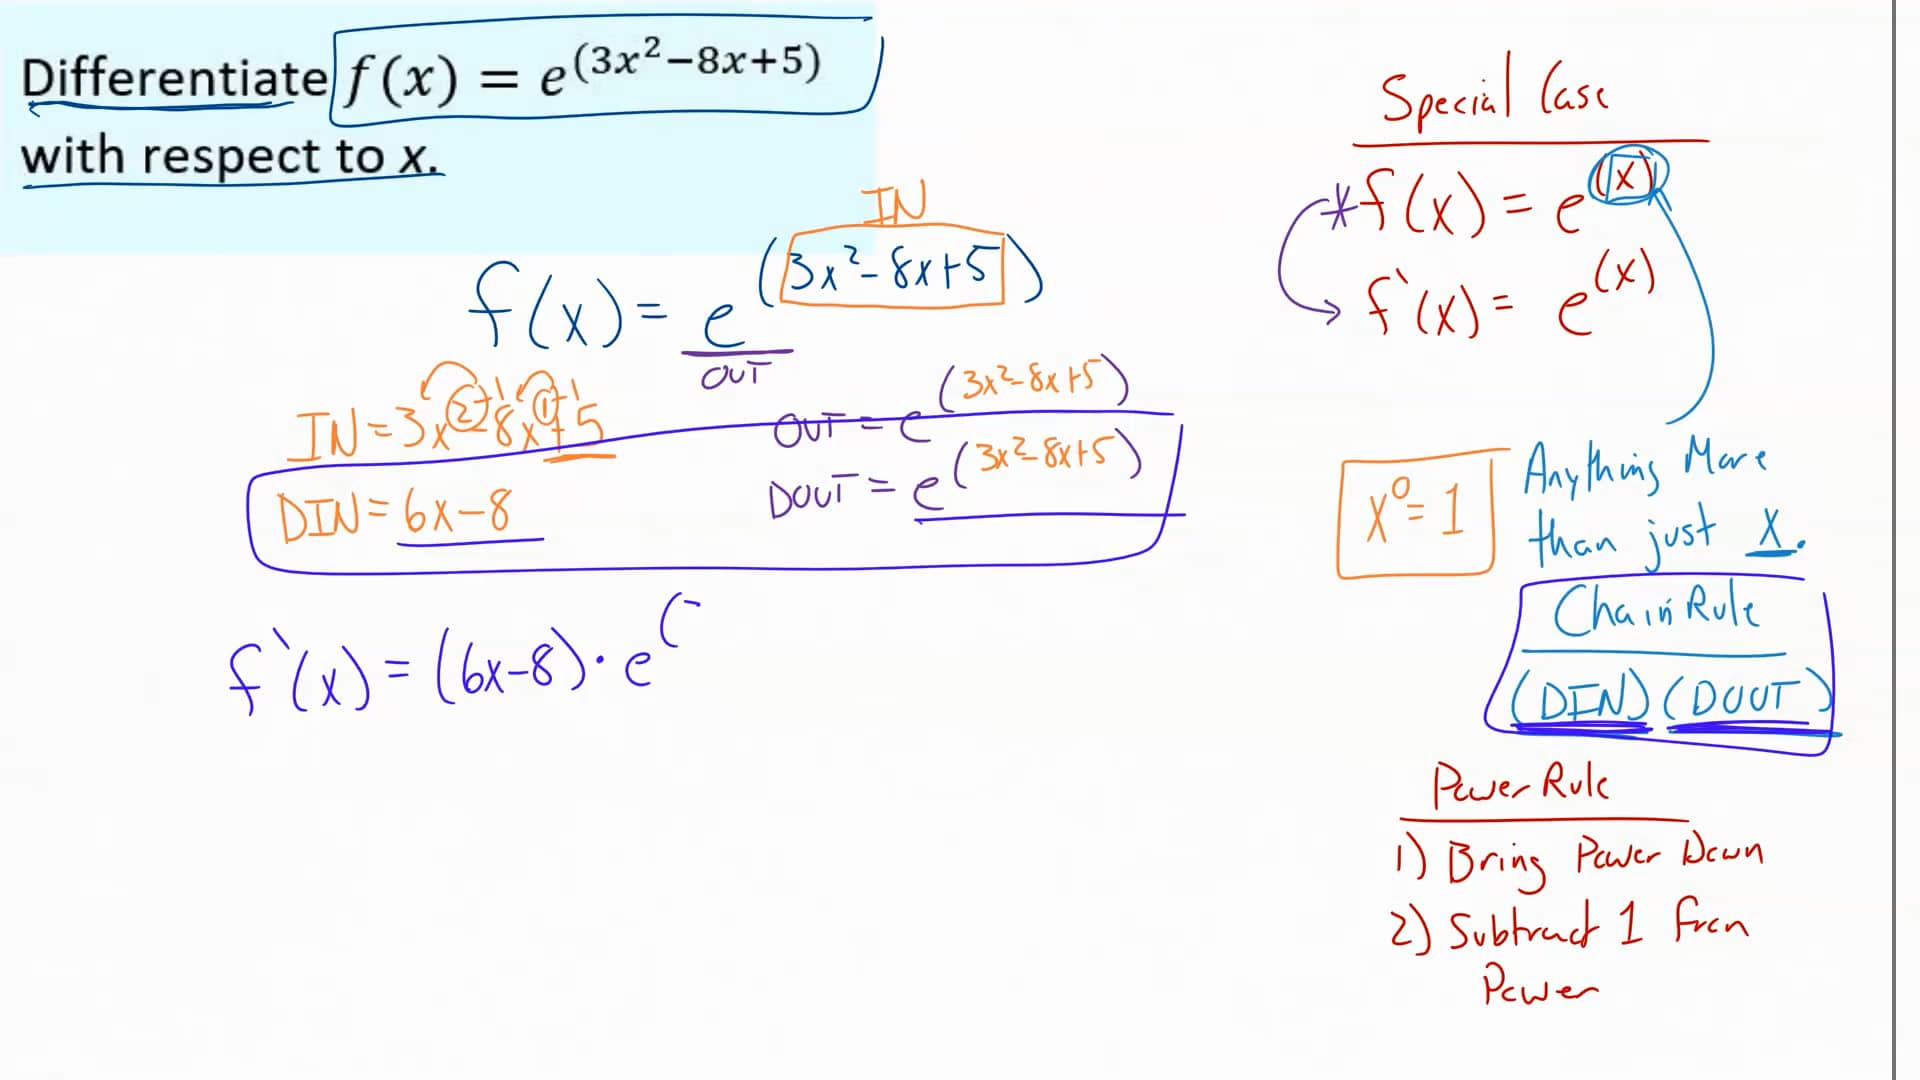 Differentiate f(x) = e^(3x²−8x+5)
with respect to x.
IN
f(x) = e^(3x²-8x+5)
OUT
IN = 3x^2-1 -8x^1-1 +5
OUT = e^(3x²-8x+5)
DIN = 6x-8
DOUT = e^(3x²-8x+5)
f`(x) = (6x-8)·e^(
Special Case
*f(x) = e^(x)
f`(x) = e^(x)
x⁰ = 1
Anything More
than just x.
Chain Rule
(DIN)(DOUT)
Power Rule
1) Bring Power Down
2) Subtract 1 From
Power